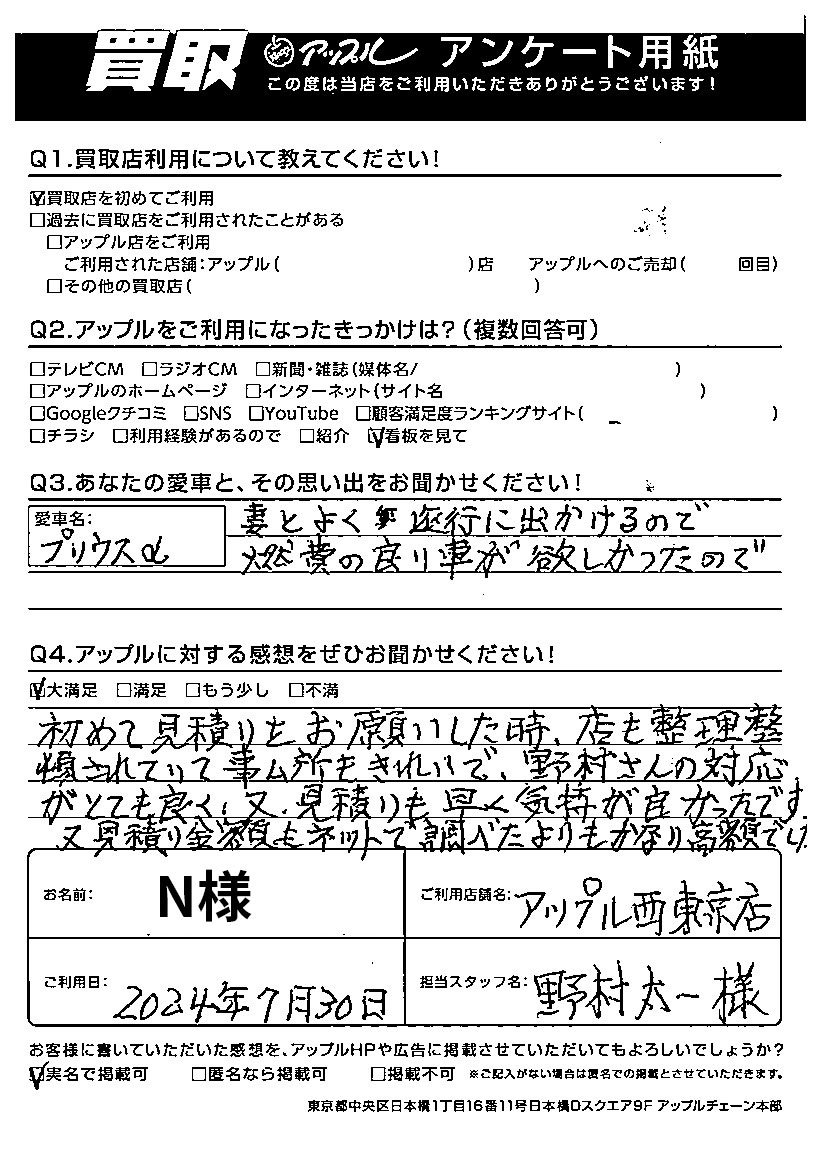 買取 アップル アンケート用紙
この度は当店をご利用いただきありがとうございます!
Q1.買取店利用について教えてください!
☑買取店を初めてご利用
□過去に買取店をご利用されたことがある
□アップル店をご利用
ご利用された店舗:アップル( )店 アップルへのご売却( 回目)
□その他の買取店( )
Q2.アップルをご利用になったきっかけは?(複数回答可)
□テレビCM □ラジオCM □新聞・雑誌(媒体名/ )
□アップルのホームページ □インターネット(サイト名 )
□Googleクチコミ □SNS □YouTube □顧客満足度ランキングサイト( )
□チラシ □利用経験があるので □紹介 ☑看板を見て
Q3.あなたの愛車と、その思い出をお聞かせください!
愛車名:
プリウスα
妻とよく遠行に出かけるので
燃費の良い車が欲しかったので
Q4.アップルに対する感想をぜひお聞かせください!
☑大満足 □満足 □もう少し □不満
初めて見積りをお願いした時、店も整理整
頓されていて事ム所もきれいで、野村さんの対応
がとても良く、又、見積りも早く気持が良かったです
又見積り金額もネットで調べたよりもかなり高額でし
お名前: N様
ご利用店舗名: アップル西東京店
ご利用日: 2024年7月30日
担当スタッフ名: 野村太一様
お客様に書いていただいた感想を、アップルHPや広告に掲載させていただいてもよろしいでしょうか?
☑実名で掲載可 □匿名なら掲載可 □掲載不可 ※ご記入がない場合は匿名での掲載とさせていただきます。
東京都中央区日本橋1丁目16番11号日本橋Dスクエア9F アップルチェーン本部